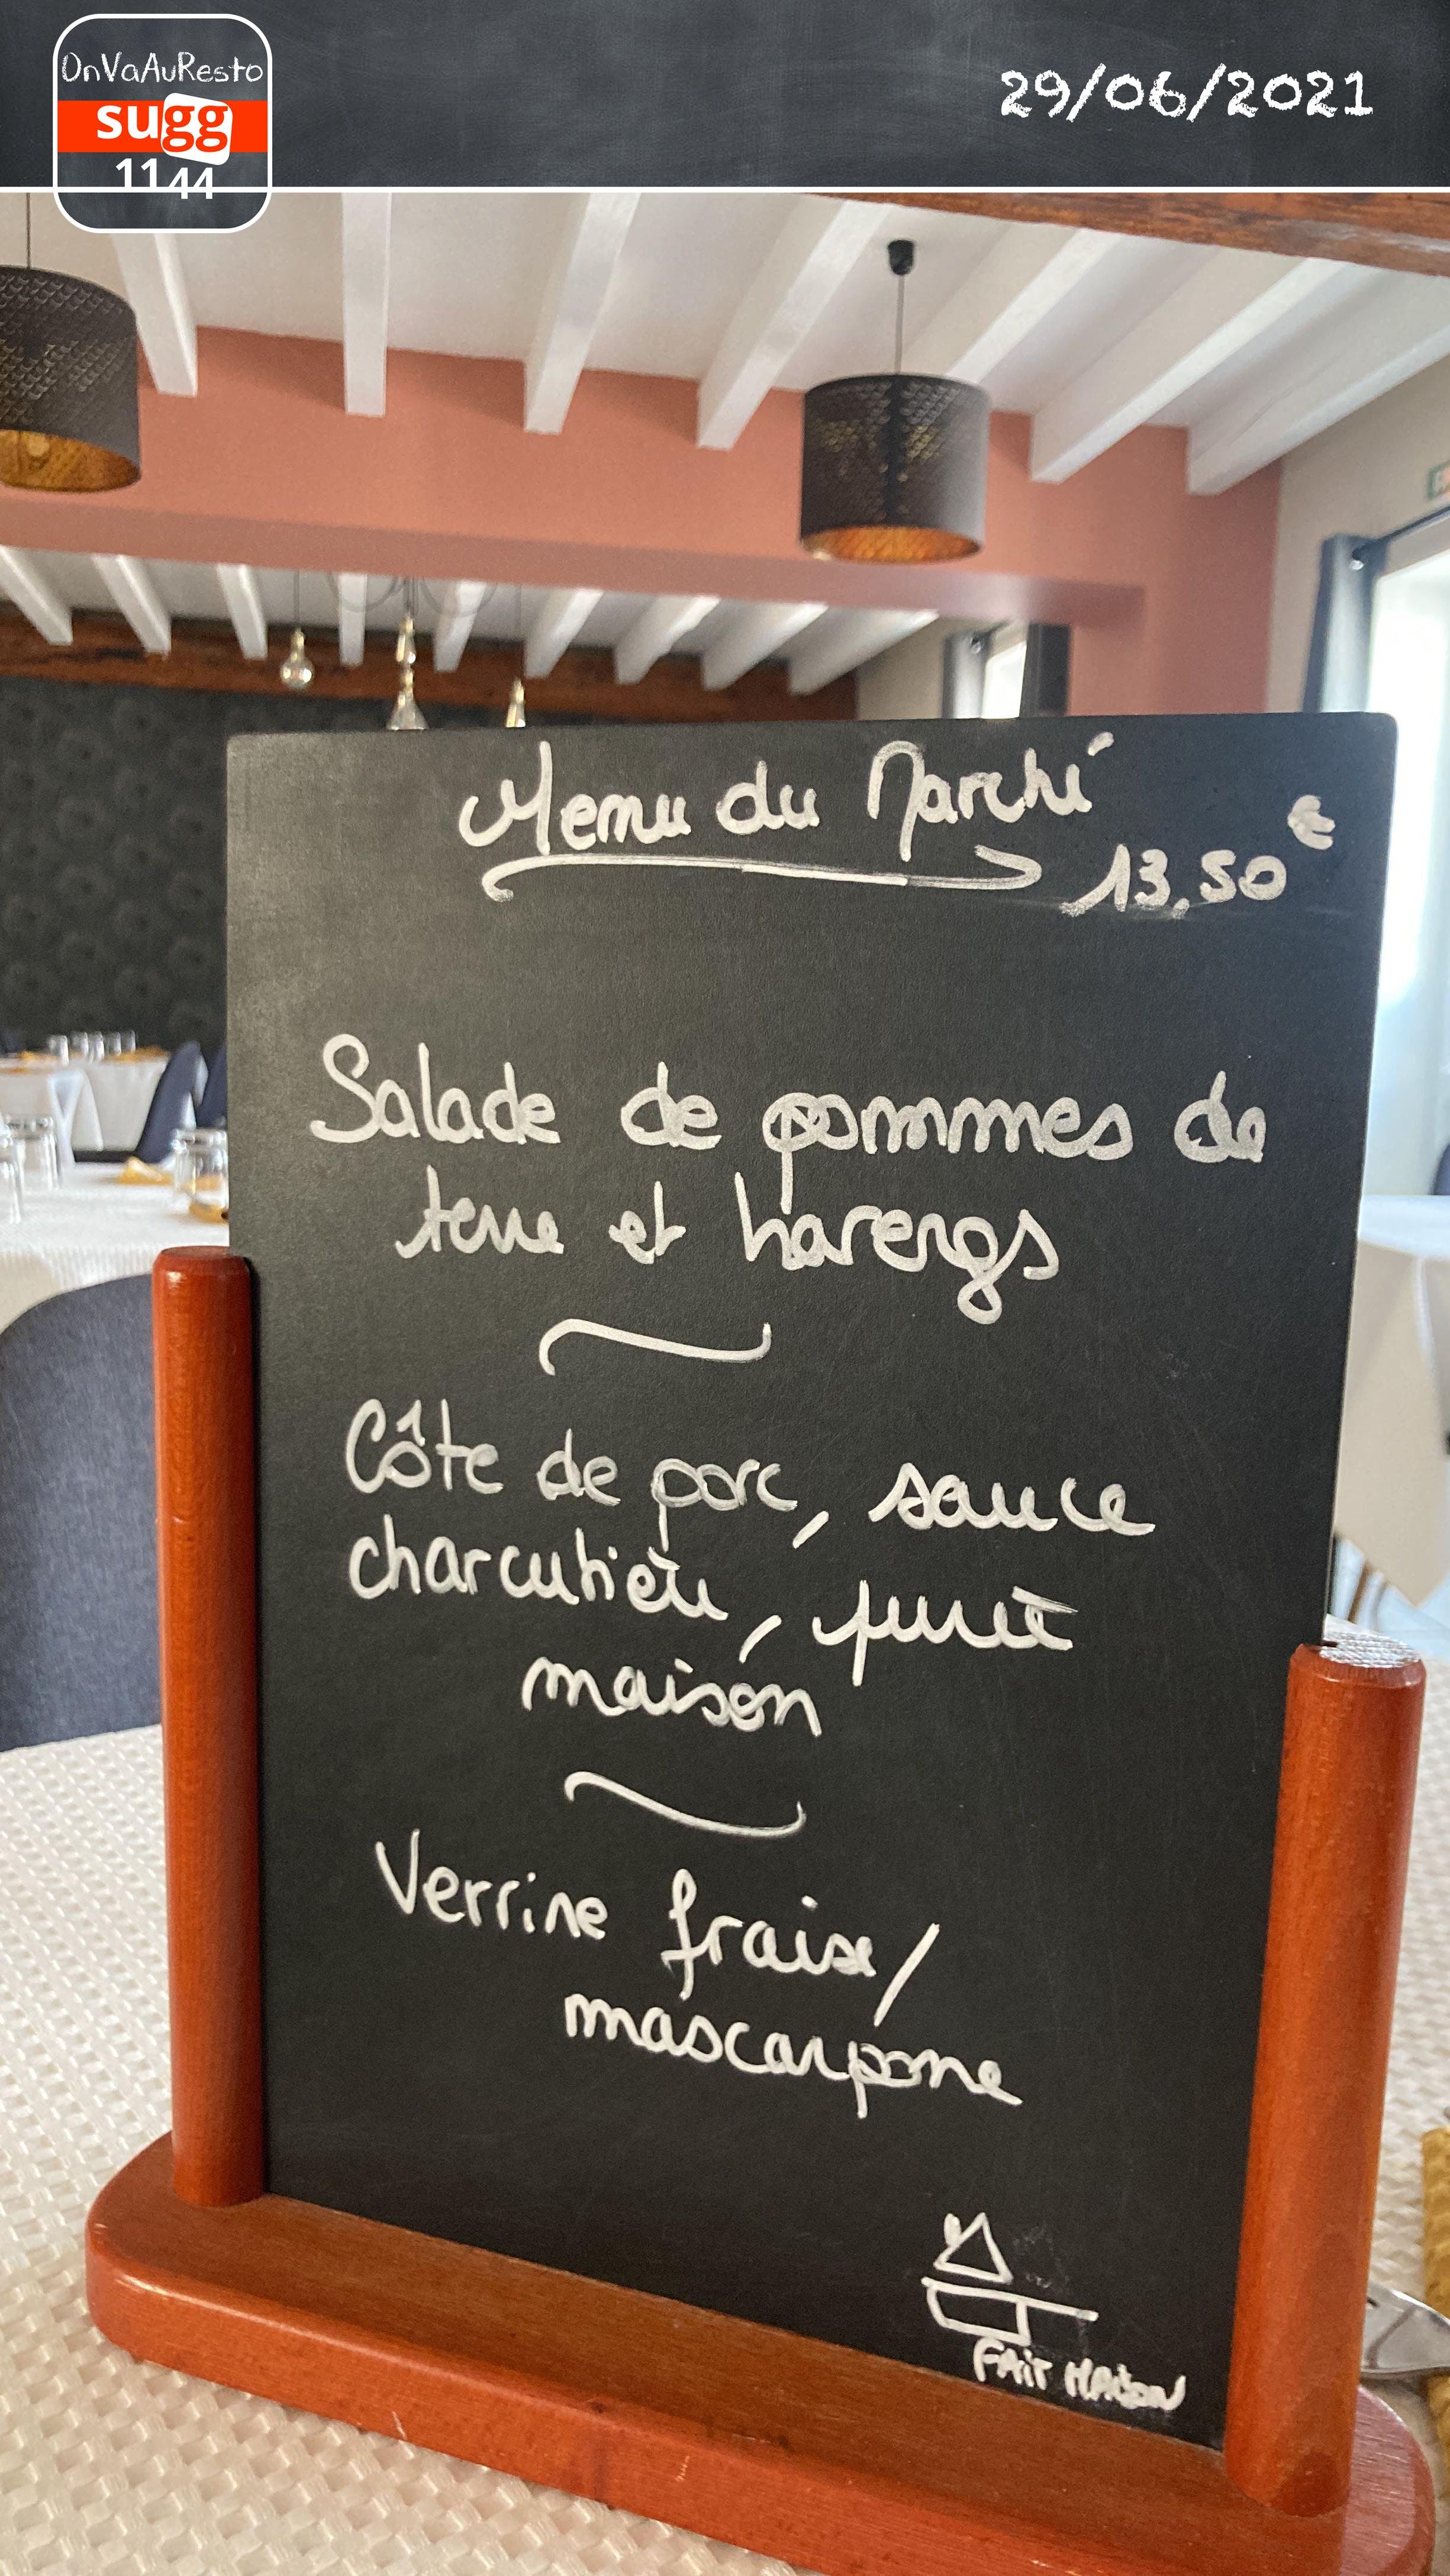 OnVaAuResto
sugg
1144
29/06/2021
Menu du Marché
13,50€
Salade de pommes de
terre et harengs
Côte de porc, sauce
charcutière, purée
maison
Verrine fraise/
mascarpone
FAIT MAISON